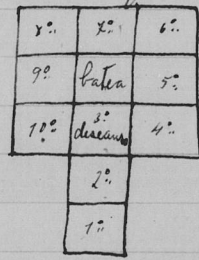 8º 7º 6º
9º batea 5º
10º 3º descanso 4º
2º
1º